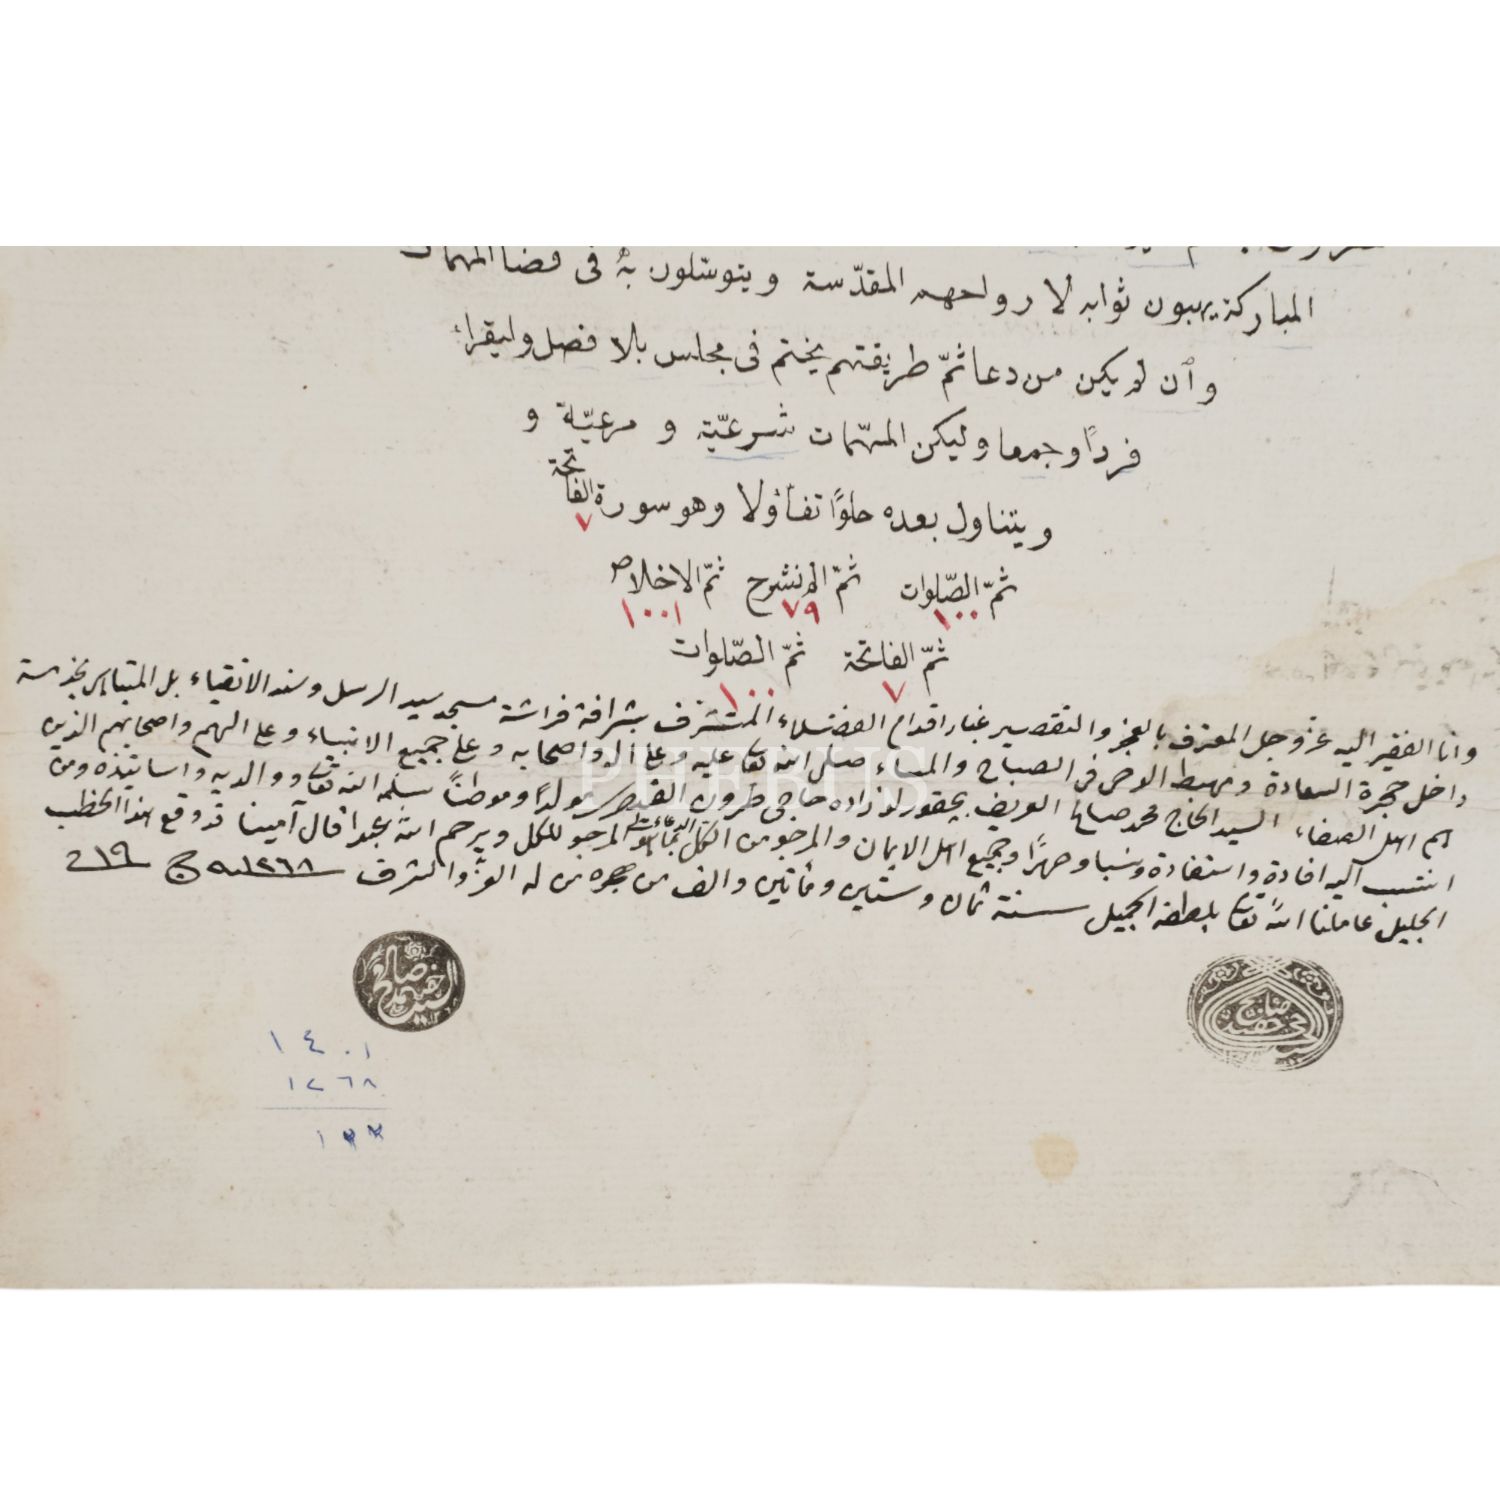 المباركة يهبون ثوابه لا رواحهم المقدّسة ويتوسّلون به فى قضا المهمات
وان لم يكن من دعا ثمّ طريقتهم يختم فى مجلس بلا فصل وليقرا
فردًا وجمعا وليكن المهّمات شرعيّة و مرعيّة و
ويتناول بعده حلوًا تفأؤلا وهو سورة الفاتحة
٧
ثمّ الصّلوات ثمّ الم نشرح ثمّ الاخلاص
١٠٠ ٧٩ ١٠٠١
ثمّ الفاتحة ثمّ الصّلوات
٧ ١٠٠
وانا الفقير اليه عزوجل المعترف بالعجز والتقصير غبار اقدام الفضلاء المتشرف بشرافة فراشة مسجد سيد الرسل وسند الاتقياء بل المتباهى بخدمة
داخل حجرة السعادة ومهبط الوحى فى الصباح والمساء صلى الله تعالى عليه وعلى اله واصحابه وعلى جميع الانبياء وعلى الهم واصحابهم الذين
هم اهل الصفاء السيد الحاج محمد صالح العريف بچقورلو زاده حاجى طرون القيصرى مولدًا وموطنًا سلمه الله تعالى ووالديه واساتيذه ومن
انتسب اليه افادة واستفادة ونسبا وصهرًا وجميع اهل الايمان والمرجو من الكل الدعاء المرجو للكل ويرحم الله عبدا قال آمينا قد وقع هذا الخطب
الجليل عاملنا الله تعالى بلطفه الجميل سنة ثمان وستين ومأتين والف من هجرة من له العز والشرف ١٢٦٨ سنه ج ١٩
صالح
محمد
١٤٠١
١٢٦٨
١٣٣
PHEBUS